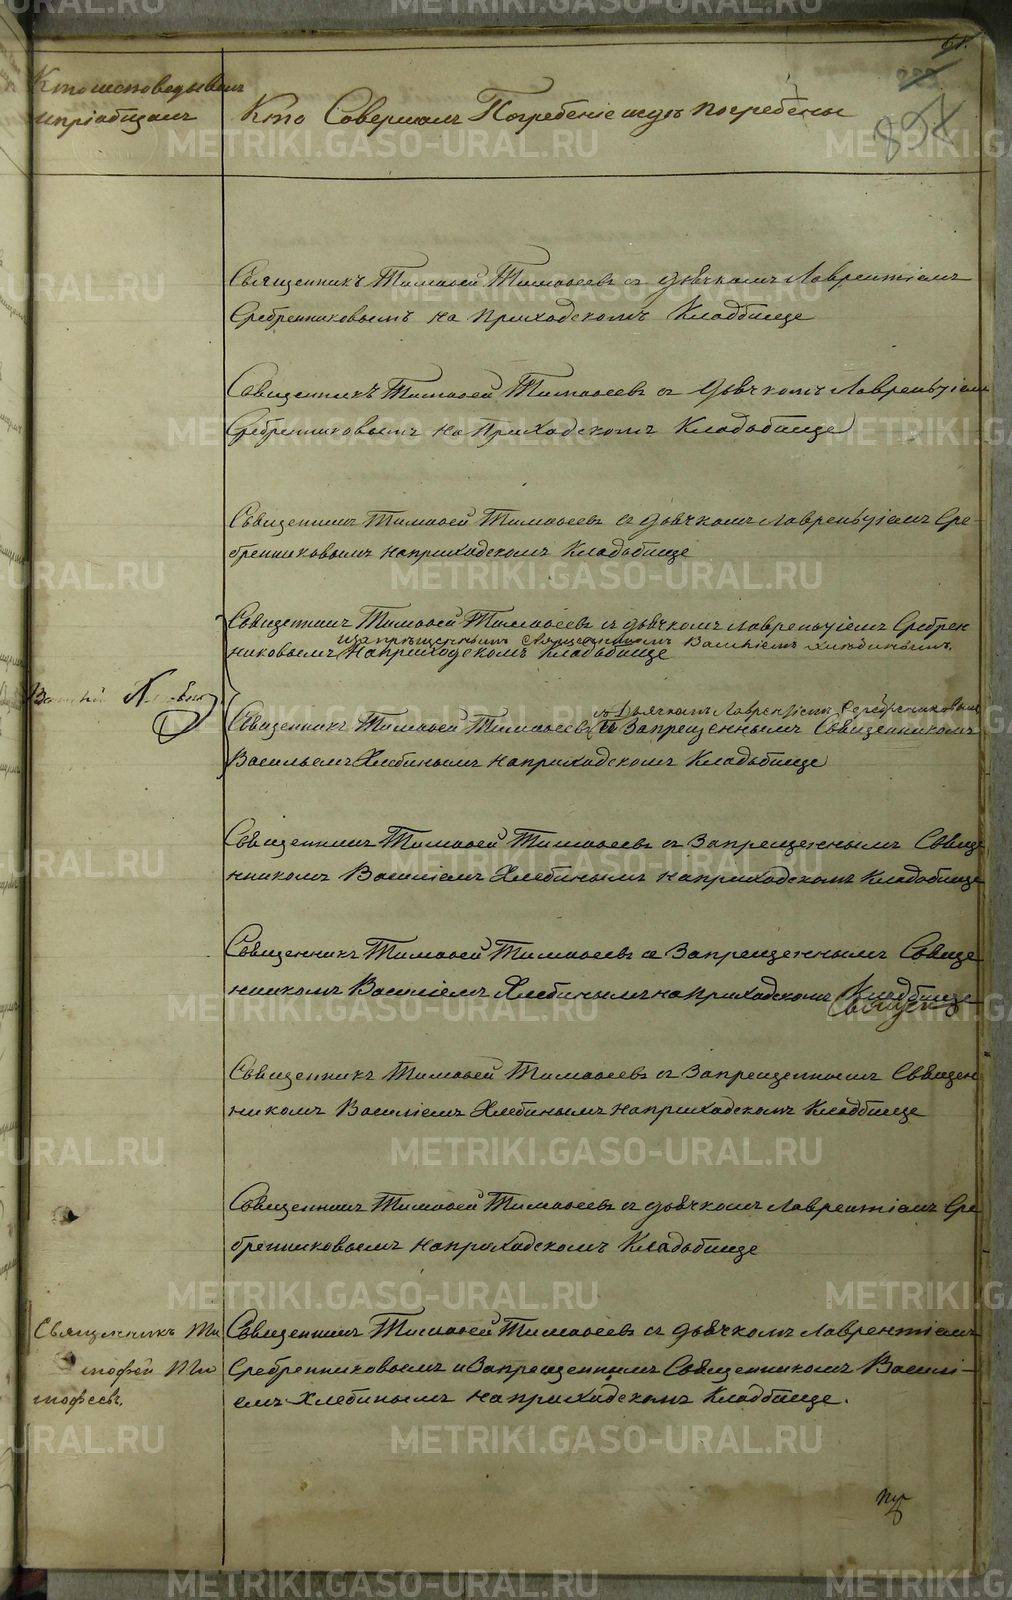 61.
Кто исповедывалъ
и пріобщалъ
Кто Совершалъ Погребеніе и гдѣ погребены
Священникъ Тимофей Тимофеевъ съ дьячкомъ Лаврентіемъ
Сребренниковымъ на приходскомъ Кладбище
Священникъ Тимофей Тимофеевъ съ дьячкомъ Лаврентіемъ
Сребренниковымъ на Приходскомъ Кладьбище
Священникъ Тимофей Тимофеевъ съ дьячкомъ Лаврентіемъ Сре-
бренниковымъ на приходскомъ Кладьбище
Священникъ Тимофей Тимофеевъ съ дьячкомъ Лаврентіемъ Сребрен
и запрещеннымъ священникомъ Василіемъ Хлебинымъ.
никовымъ на приходскомъ Кладьбище
съ Дьячкомъ Лаврентіемъ Серебрениковымъ
Священникъ Тимофей Тимофеевъ и Запрещеннымъ Священникомъ
Васильемъ Хлебинымъ на приходскомъ Кладьбище
Священникъ Тимофей Тимофеевъ съ Запрещеннымъ Свяще
нникомъ Василіемъ Хлебинымъ на приходскомъ Кладьбище
Священникъ Тимофей Тимофеевъ съ Запрещеннымъ Свяще
нникомъ Василіемъ Хлебинымъ на приходскомъ Кладбище
Священникъ Тимофей Тимофеевъ съ Запрещеннымъ Священ
никомъ Василіемъ Хлебинымъ на приходскомъ Кладбище
Священникъ Тимофей Тимофеевъ съ дьячкомъ Лаврентіемъ Сре
бренниковымъ на приходскомъ Кладьбище
Священникъ Ти
мофей Ти
мофеевъ.
Священникъ Тимофей Тимофеевъ съ дьячкомъ Лаврентіемъ
Сребренниковымъ и Запрещеннымъ Священникомъ Василі-
емъ Хлебинымъ на приходскомъ Кладбище.
METRIKI.GASO-URAL.RU